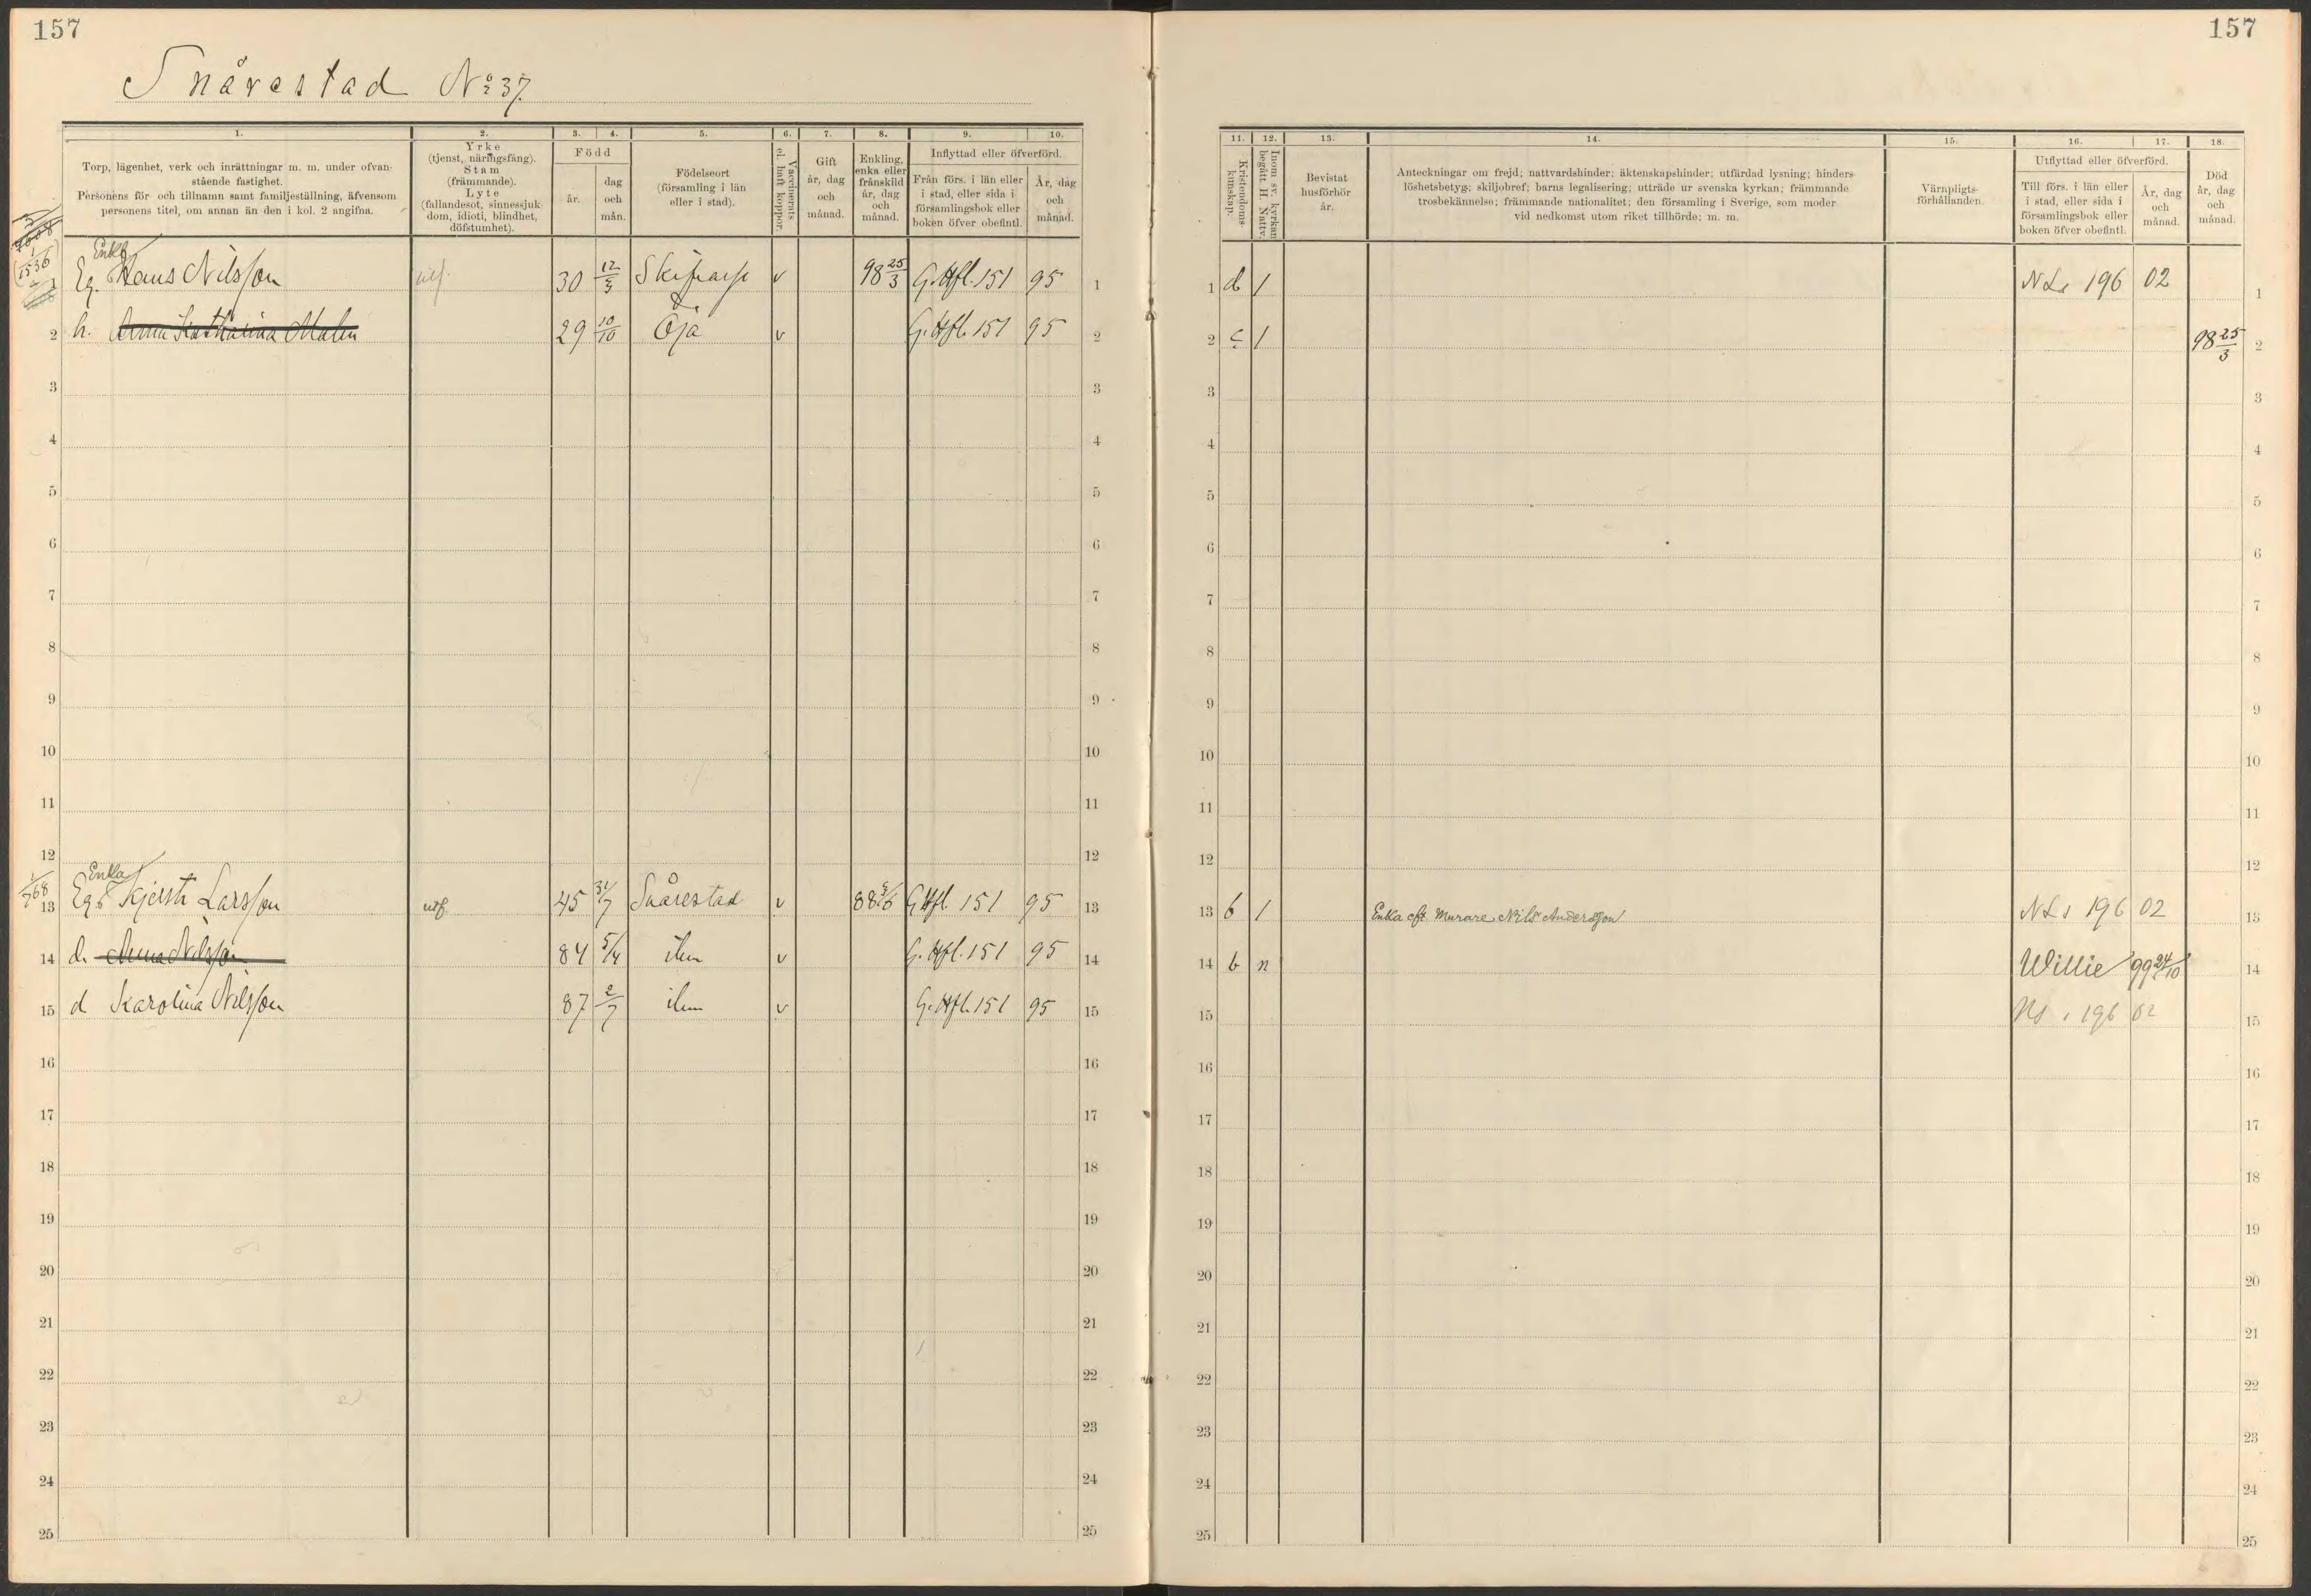 157
157
Snårestad № 37.
1. 2. 3. 4. 5. 6. 7. 8. 9. 10.
Torp, lägenhet, verk och inrättningar m. m. under ofvan-
stående fastighet.
Personens för- och tillnamn samt familjeställning, äfvensom
personens titel, om annan än den i kol. 2 angifna.
Yrke
(tjenst, näringsfång).
Stam
(främmande).
Lyte
(fallandesot, sinnessjuk-
dom, idioti, blindhet,
döfstumhet).
Född
år.
dag
och
mån.
Födelseort
(församling i län
eller i stad).
Vaccinerats
el. haft koppor.
Gift
år, dag
och
månad.
Enkling,
enka eller
frånskild
år, dag
och
månad.
Inflyttad eller öfverförd.
Från förs. i län eller
i stad, eller sida i
församlingsbok eller
boken öfver obefintl.
År, dag
och
månad.
11. 12. 13. 14. 15. 16. 17. 18.
Kristendoms-
kunskap.
Inom sv. kyrkan
begått H. Nattv.
Bevistat
husförhör
år.
Anteckningar om frejd; nattvardshinder; äktenskapshinder; utfärdad lysning; hinders-
löshetsbetyg; skiljobref; barns legalisering; utträde ur svenska kyrkan; främmande
trosbekännelse; främmande nationalitet; den församling i Sverige, som moder
vid nedkomst utom riket tillhörde; m. m.
Värnpligts-
förhållanden.
Utflyttad eller öfverförd.
Till förs. i län eller
i stad, eller sida i
församlingsbok eller
boken öfver obefintl.
År, dag
och
månad.
Död
år, dag
och
månad.
Enkl
1 Eg. Hans Nilsson 30 12/3 Skifvarp v 98 25/3 G. Hfl. 151 95 1
1 d / N L s 196 02 1
2 h. Anna Katharina Malm 29 10/10 Öja v G. Hfl. 151 95 2
2 c / 98 25/3 2
3 3 3 3
4 4 4 4
5 5 5 5
6 6 6 6
7 7 7 7
8 8 8 8
9 9 9 9
10 10 10 10
11 11 11 11
12 12 12 12
1/768
Enka
13 Eg. Kjersti Larsson utf. 45 31/7 Snårestad v 88 G Hfl. 151 95 13
13 b / Enka eft Murare Nils Andersson N L s 196 02 13
14 d. Anna Nilsson 84 5/4 ibm v G. Hfl. 151 95 14
14 b n Willie 99 24/10 14
15 d Karolina Nilsson 87 2/7 ibm v G. Hfl. 151 95 15
15 Ns s 196 02 15
16 16 16 16
17 17 17 17
18 18 18 18
19 19 19 19
20 20 20 20
21 21 21 21
22 22 22 22
23 23 23 23
24 24 24 24
25 25 25 25